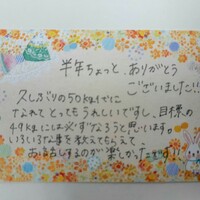 半年ちょっと、ありがとう
ございました!!!
久しぶりの50kg台に
なれてとってもうれしいですし、目標の
49kgには必ずなろうと思います。
いろいろな事を教えてもらえて、
お話しするのが楽しかったです!!